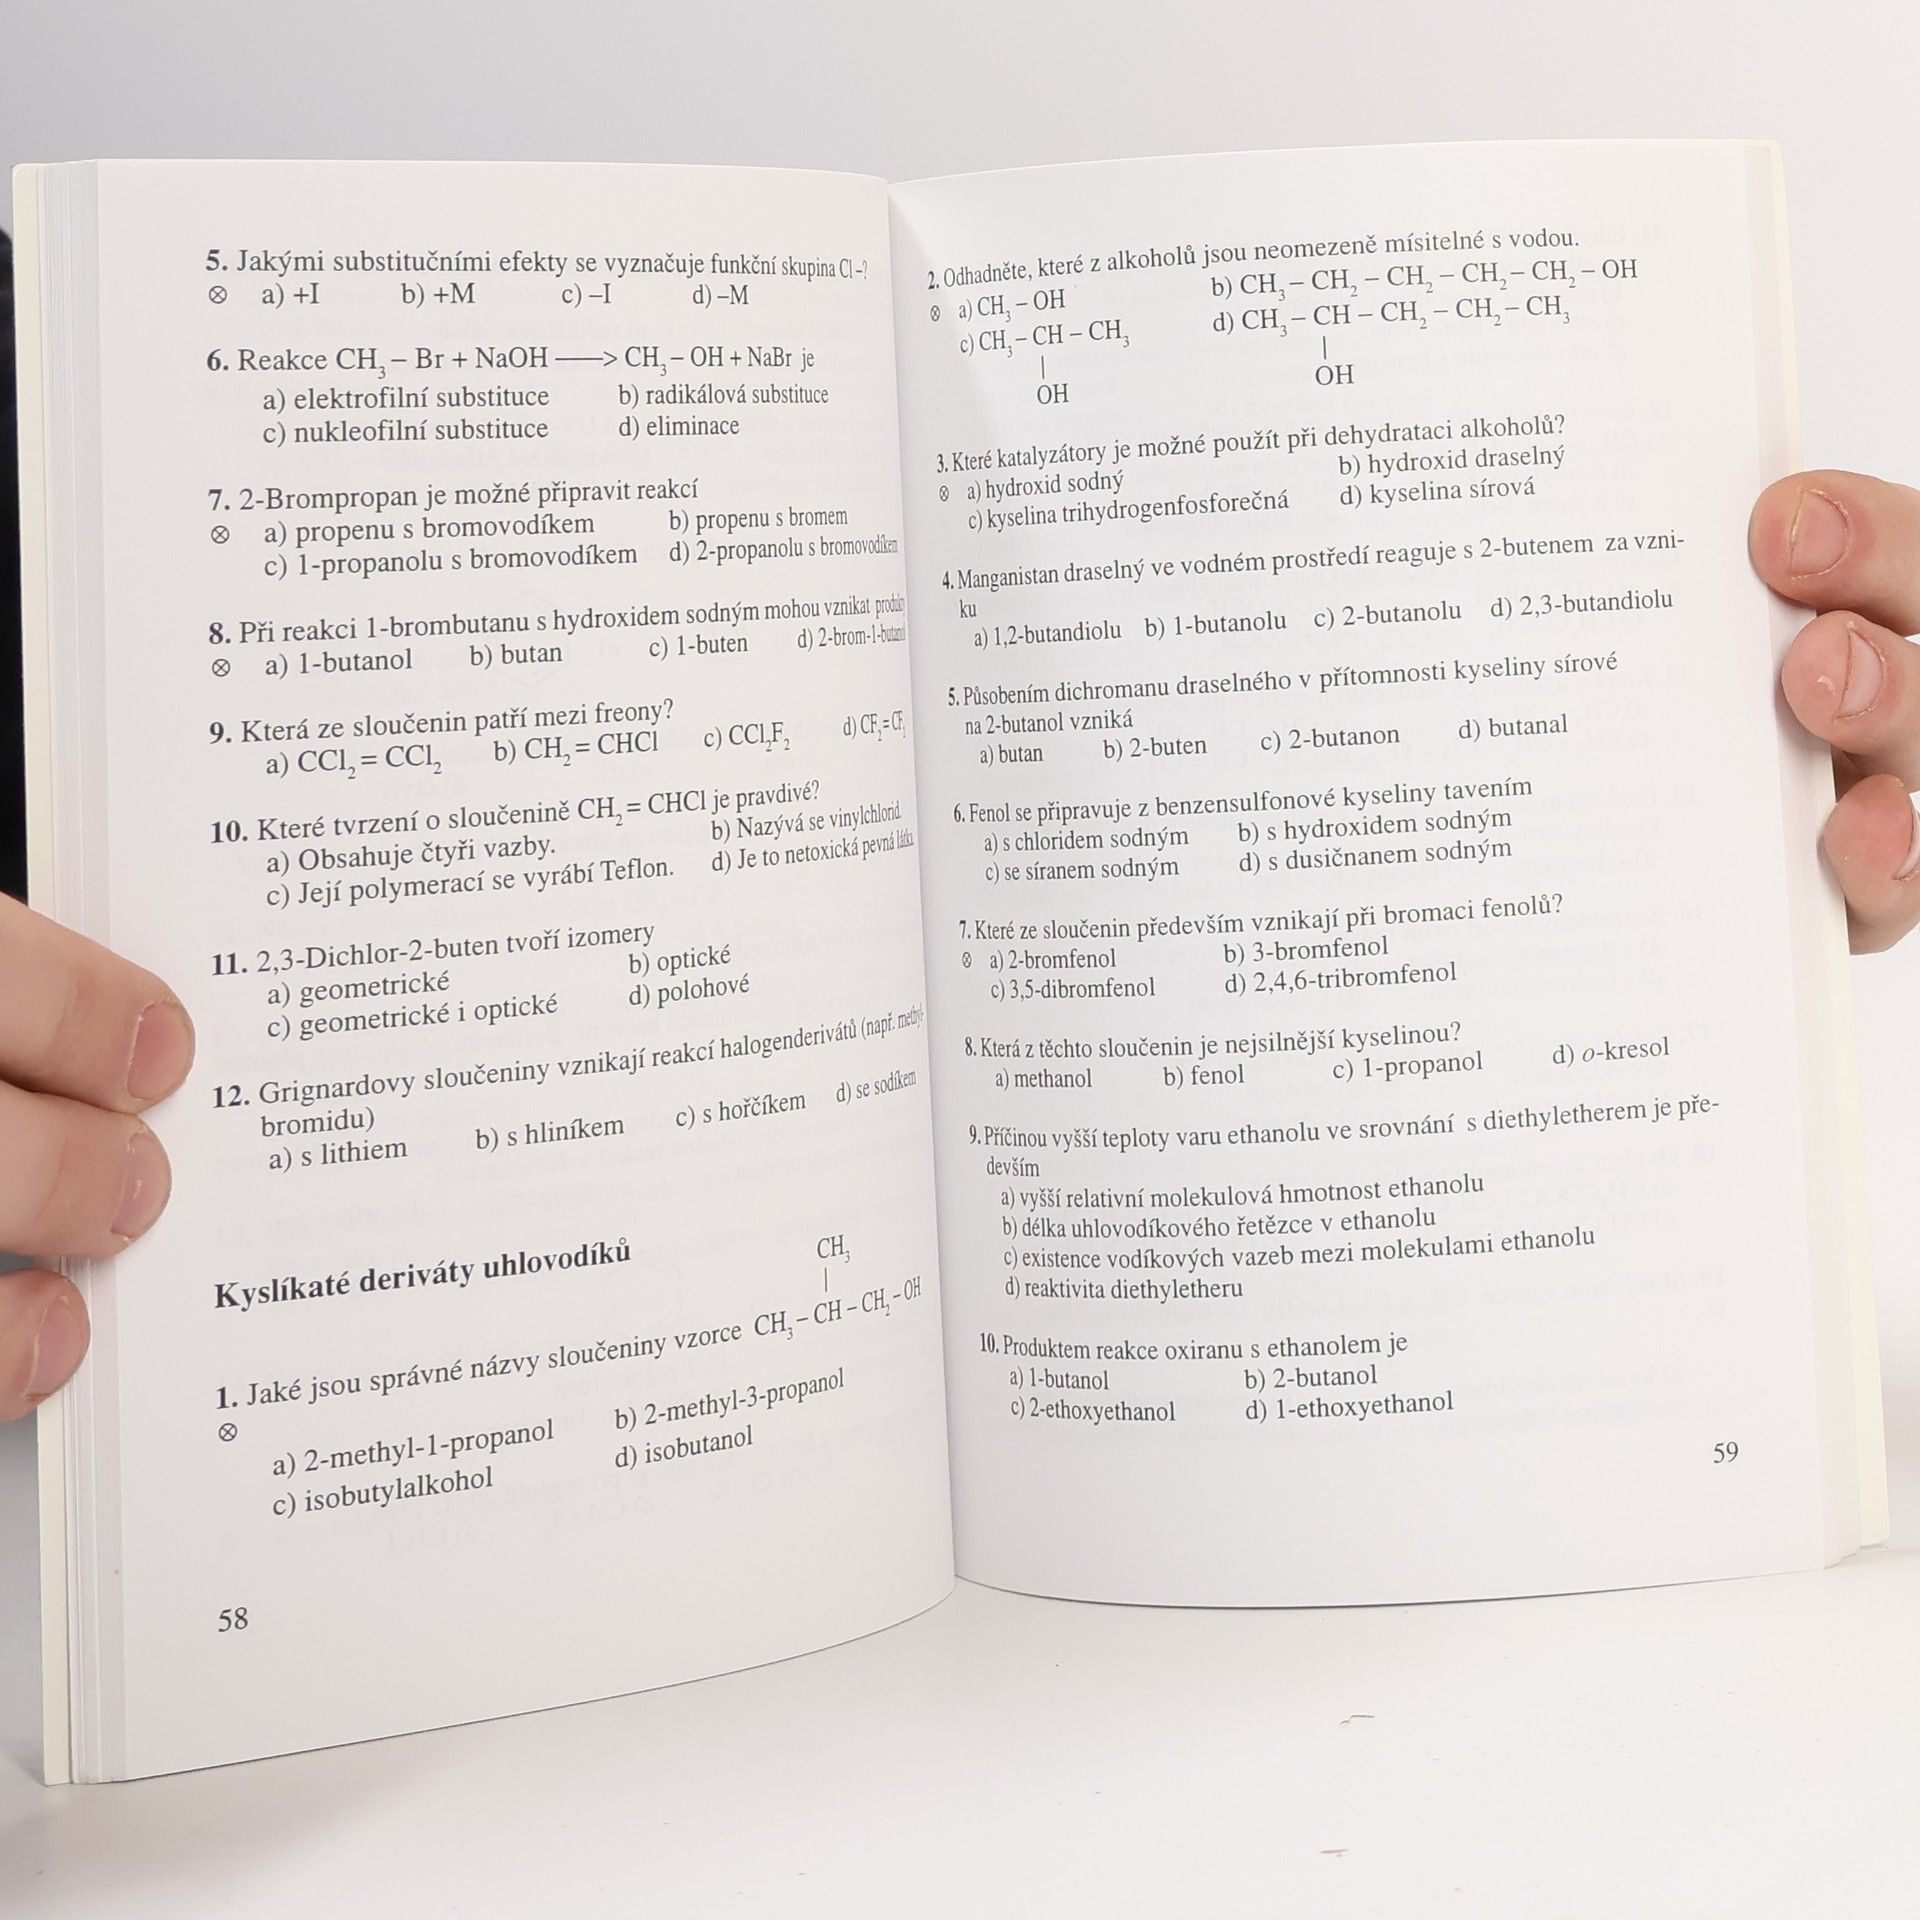 5. Jakými substitučními efekty se vyznačuje funkční skupina Cl –?
⊗ a) +I b) +M c) –I d) –M
6. Reakce CH₃ – Br + NaOH ——> CH₃ – OH + NaBr je
a) elektrofilní substituce b) radikálová substituce
c) nukleofilní substituce d) eliminace
7. 2-Brompropan je možné připravit reakcí
⊗ a) propenu s bromovodíkem b) propenu s bromem
c) 1-propanolu s bromovodíkem d) 2-propanolu s bromovodíkem
8. Při reakci 1-brombutanu s hydroxidem sodným mohou vznikat produkty
⊗ a) 1-butanol b) butan c) 1-buten d) 2-brom-1-butanol
9. Která ze sloučenin patří mezi freony?
a) CCl₂ = CCl₂ b) CH₂ = CHCl c) CCl₂F₂ d) CF₂ = CF₂
10. Které tvrzení o sloučenině CH₂ = CHCl je pravdivé?
a) Obsahuje čtyři vazby. b) Nazývá se vinylchlorid.
c) Její polymerací se vyrábí Teflon. d) Je to netoxická pevná látka.
11. 2,3-Dichlor-2-buten tvoří izomery
a) geometrické b) optické
c) geometrické i optické d) polohové
12. Grignardovy sloučeniny vznikají reakcí halogenderivátů (např. methyl-
bromidu)
a) s lithiem b) s hliníkem c) s hořčíkem d) se sodíkem
Kyslíkaté deriváty uhlovodíků
CH₃
|
1. Jaké jsou správné názvy sloučeniny vzorce CH₃ – CH – CH₂ – OH
⊗
a) 2-methyl-1-propanol b) 2-methyl-3-propanol
c) isobutylalkohol d) isobutanol
58
2. Odhadněte, které z alkoholů jsou neomezeně mísitelné s vodou.
⊗ a) CH₃ – OH b) CH₃ – CH₂ – CH₂ – CH₂ – CH₂ – OH
c) CH₃ – CH – CH₃ d) CH₃ – CH – CH₂ – CH₂ – CH₃
| |
OH OH
3. Které katalyzátory je možné použít při dehydrataci alkoholů?
⊗ a) hydroxid sodný b) hydroxid draselný
c) kyselina trihydrogenfosforečná d) kyselina sírová
4. Manganistan draselný ve vodném prostředí reaguje s 2-butenem za vzni-
ku
a) 1,2-butandiolu b) 1-butanolu c) 2-butanolu d) 2,3-butandiolu
5. Působením dichromanu draselného v přítomnosti kyseliny sírové
na 2-butanol vzniká
a) butan b) 2-buten c) 2-butanon d) butanal
6. Fenol se připravuje z benzensulfonové kyseliny tavením
a) s chloridem sodným b) s hydroxidem sodným
c) se síranem sodným d) s dusičnanem sodným
7. Které ze sloučenin především vznikají při bromaci fenolů?
⊗ a) 2-bromfenol b) 3-bromfenol
c) 3,5-dibromfenol d) 2,4,6-tribromfenol
8. Která z těchto sloučenin je nejsilnější kyselinou?
a) methanol b) fenol c) 1-propanol d) o-kresol
9. Příčinou vyšší teploty varu ethanolu ve srovnání s diethyletherem je pře-
devším
a) vyšší relativní molekulová hmotnost ethanolu
b) délka uhlovodíkového řetězce v ethanolu
c) existence vodíkových vazeb mezi molekulami ethanolu
d) reaktivita diethyletheru
10. Produktem reakce oxiranu s ethanolem je
a) 1-butanol b) 2-butanol
c) 2-ethoxyethanol d) 1-ethoxyethanol
59